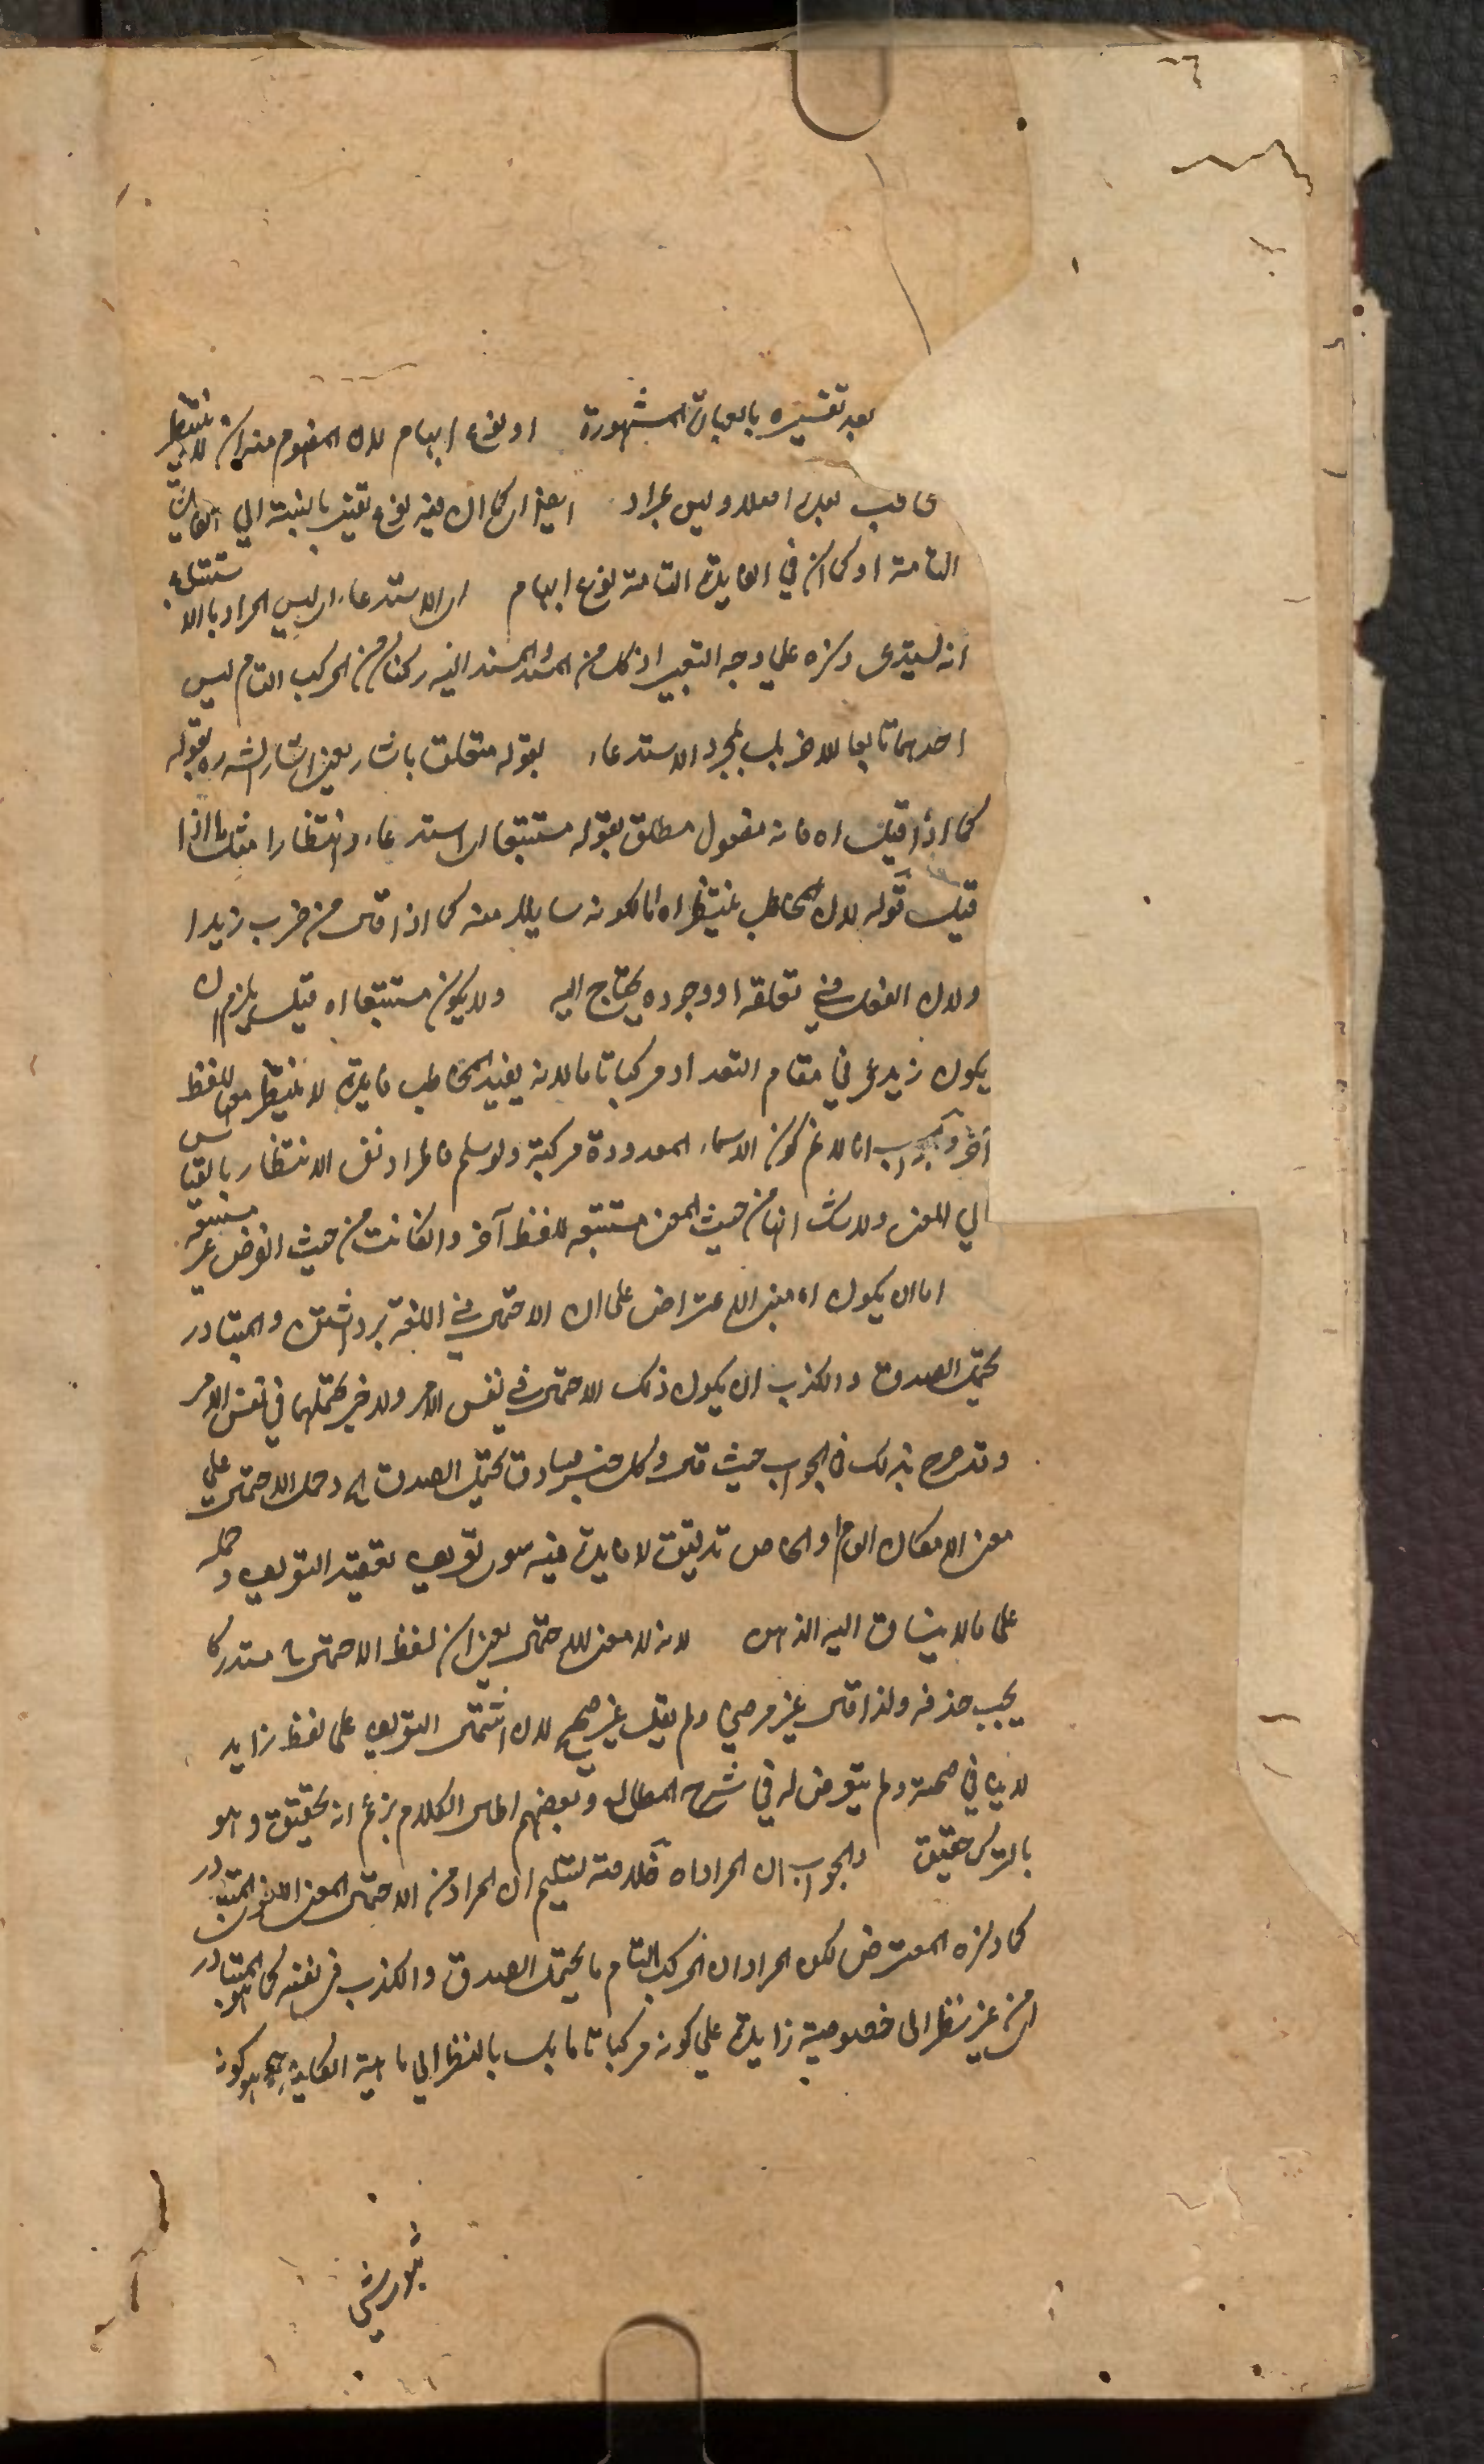 بعد تفسيره بالعبارة المشهورة او نوع ابهام لان المفهوم منه ان لا ينتظر
بعده اصلا وليس بمراد اي يعني ان كما ان فيه نوع تعيين بالنسبة الي الفائدة
التامة او كما ان في الفايدة التامة نوع ابهام اي الاستدعاء اي ليس المراد بالاستتباع
انه يستدعي ذكره علي وجه التبعية اذ كل من المسند والمسند اليه ركنان من المركب التام ليس
احدهما تابعا للاخر بل مجرد الاستدعاء بقوله متعلق باشار يعني اشار الش ره بقوله
كما اذا قيل اه فانه مفعول مطلق بقوله مستتبعا اي استدعاء وانتظارا مثل ما اذا
قيل قوله لان المخاطب ينتظر اه اما لكونه سايلا عنه كما اذا قال من ضرب زيدا
ولان الفعل في تعلقه او وجوده يحتاج اليه ولا يكون مستتبعا اه قيل يلزم ان
يكون زيد عمرو في مقام التعداد مركبا تاما لانه يفيد المخاطب فايدة لا ينتظر معها للفظ
آخر والجواب انا لا نم كون الاسماء المعدودة مركبة ولو سلم فالمراد نفي الانتظار بالقياس
الي المعنى ولا شك انها من حيث المعنى مستتبعة للفظ آخر وان كانت من حيث الغرض غير مستتبعة
اما ان يكون اه مبنى الاعتراض على ان الاحتمال في اللغة برداشتن والمتبادر
يحتمل الصدق والكذب ان يكون ذلك الاحتمال في نفس الامر ولا خبر يحتملهما في نفس الامر
وقد صرح بذلك في الجواب حيث قال وكل خبر صادق يحتمل الصدق اه وحمل الاحتمال علي
معنى الامكان العام او الخاص تدقيق لا فايدة فيه سوى تعقيد التعريف وحمله
على ما لا ينساق اليه الذهن لانه لا معنى للاحتمال يعني ان لفظ الاحتمال مستدركا
يجب حذفه ولذا قال غير مرضي ولم يقل غير صحيح لان اشتمال التعريف على لفظ زايد
لا ينافي صحته ولم يتعرض له في شرح المطالع وبعضهم اطال الكلام بزعم انه تحقيق وهو
بالترك حقيق والجواب ان المراد اه خلاصته تسليم ان المراد من الاحتمال المعنى اللغوي المتبادر
كما ذكره المعترض لكن المراد ان المركب التام ما يحتمل الصدق والكذب في نفسه كما هو المتبادر
اي من غير نظر الى خصوصية زايدة علي كونه مركبا تاما بل بالنظر الي ماهية الكلية هي هو كونه